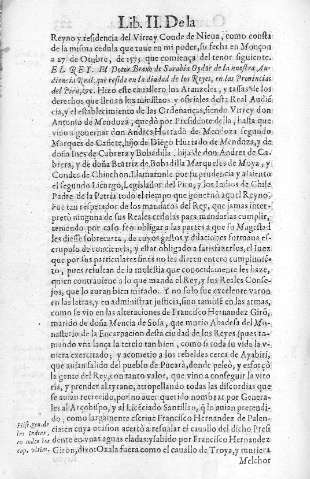 Lib. II. De la
Reyno y residencia del Virrey Conde de Nieua, como consta
de la misma cedula que tuue en mi poder, su fecha en Monçon
a 27. de Otubre, de 1563. que comiença del tenor siguiente.
EL REY. El Dotor Brauo de Sarabia Oydor de la nuestra Au-
diencia Real, que reside en la ciudad de los Reyes, en las Prouincias
del Piru, &c. Hizo este cauallero los Aranzeles, y tassas de los
derechos que lleuan los ministros y oficiales desta Real Audien
cia, y el establecimiento de las Ordenanças, siendo Virrey don
Antonio de Mendoza, quedò por Presidente de la, hasta que
vino a gouernar don Andres Hurtado de Mendoza segundo
Marques de Cañete, hijo de Diego Hurtado de Mendoza, y de
doña Ines de Cabrera y Bobadilla, hija de don Andres de Ca-
brera, y de doña Beatriz de Bobadilla Marqueses de Moya, y
Condes de Chinchon. Llamaronle por su prudencia y assiento
el segundo Licurgo, Legislador del Piru, y los Indios de Chile
Padre de la Patria todo el tiempo que gouernò aquel Reyno.
Fue tan respetador de los mandatos del Rey, que jamas inter-
pretò ninguna de sus Reales cedulas para mandarlas cumplir,
teniendo por caso feo obligar a las partes a que su Magestad
les diesse sobrecarta, de cuyos gastos y dilaciones formaua es-
crupulo de conciencia, y estar obligado a satisfazerlos, el Iuez
que por sus particulares fines no les diere entero cumplimie-
to, pues resultan de la molestia que conocidamente les haze,
quien contrauiene a lo que manda el Rey, y sus Reales Conse-
jos, que lo auran bien mirado. Y no solo fue excelente varon
en las letras, y en administrar justicia, sino tambie en las armas,
como se vio en las alteraciones de Francisco Hernandez Girò,
marido de doña Mencia de Sosa, que murio Abadesa del Mo-
nasterio de la Encarnacion desta ciudad de los Reyes) pues to-
mando vna lança la terciò tan bien, como si toda su vida la v-
uiera exercitado; y acometio a los rebeldes cerca de Ayabiri,
que auian salido del pueblo de Pucarà, donde peleò, y esforçò
la gente del Rey, con tanto valor, que vino a conseguir la vito
ria, y prender al tyrano, atropellando todas las discordias que
se auian recrecido, por no auer querido nombrar por Genera-
les al Arçobispo, y al Licenciado Santillan, q lo auian pretendi-
do, como largamente escriue Francisco Hernandez de Palen-
cia; en cuya ocasion acertò a resualar el cauallo del dicho Presi
dente en vnas aguas eladas; y sabido por Francisco Hernandez
Giron, dixo: Oxala fuera como el cauallo de Troya, y muriera
Melchor
Hist. gen. de
las Indias,
en todos los
cap. vltim.